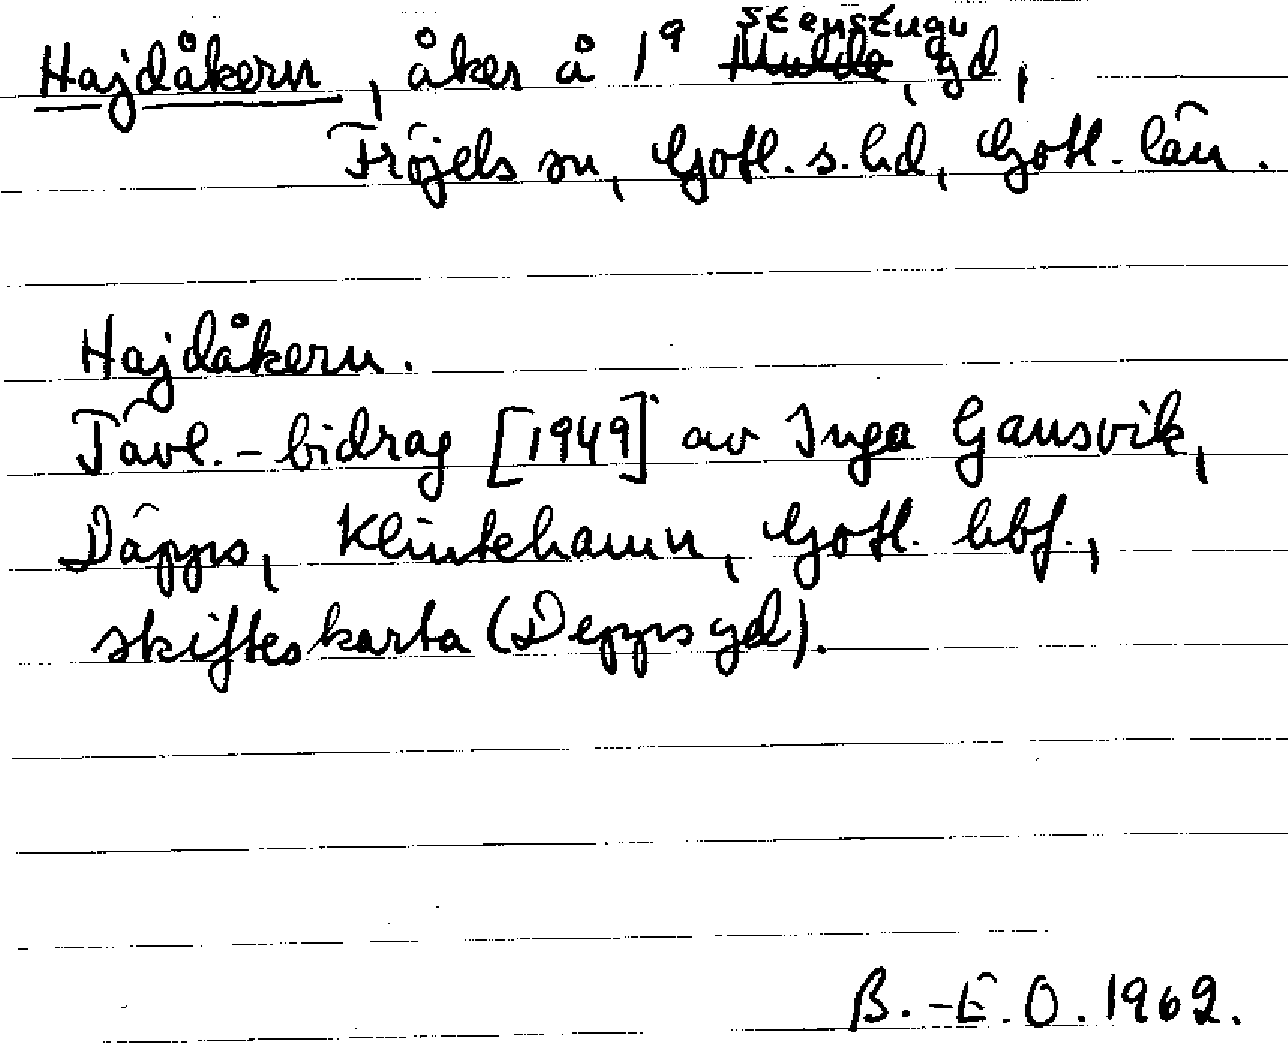 Hajdåkern, åker å 1ª Stenstugu gd,
Fröjels sn, Gotl. s. hd, Gotl. län.
Hajdåkern.
Tävl.-bidrag [1949] av Inga Gansvik,
Däpps, Klintehamn, Gotl. hbf.,
skifteskarta (Depps gd).
B.-E. O. 1962.